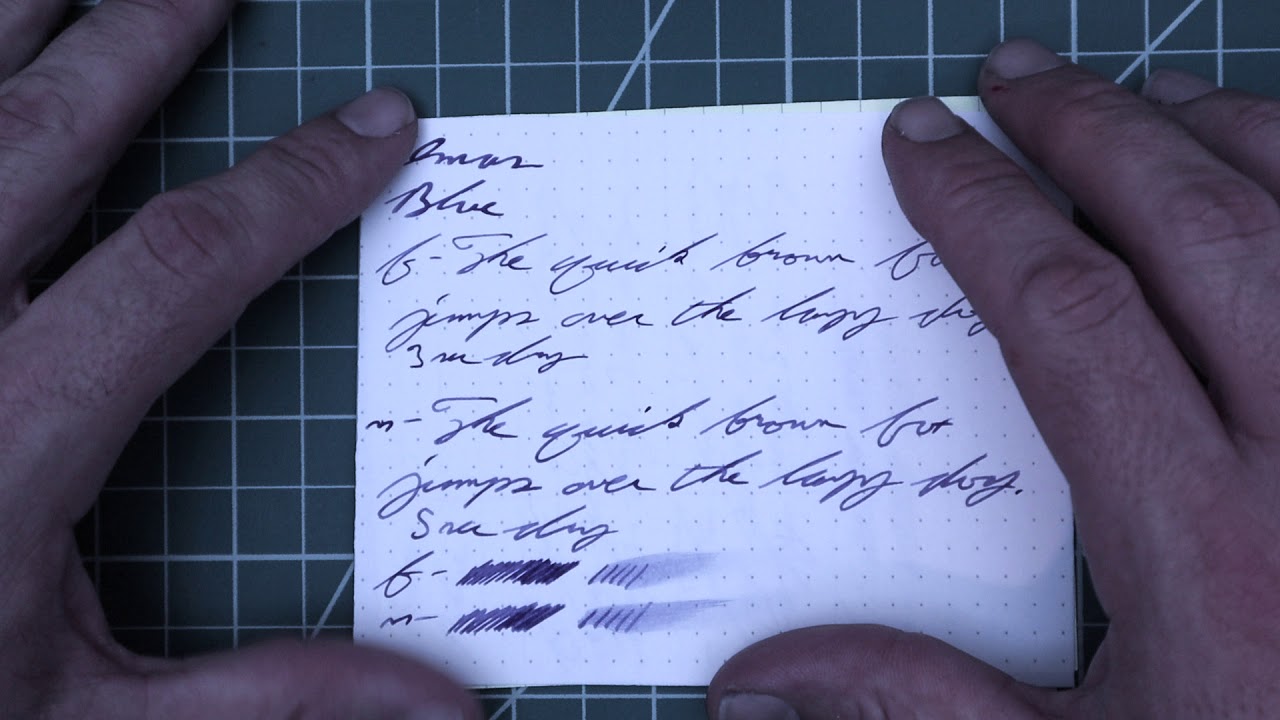 Omas
Blue
f- The quick brown fo
jumps over the lazy dog
3 sec dry
m- The quick brown fox
jumps over the lazy dog.
5 sec dry
f-
m-